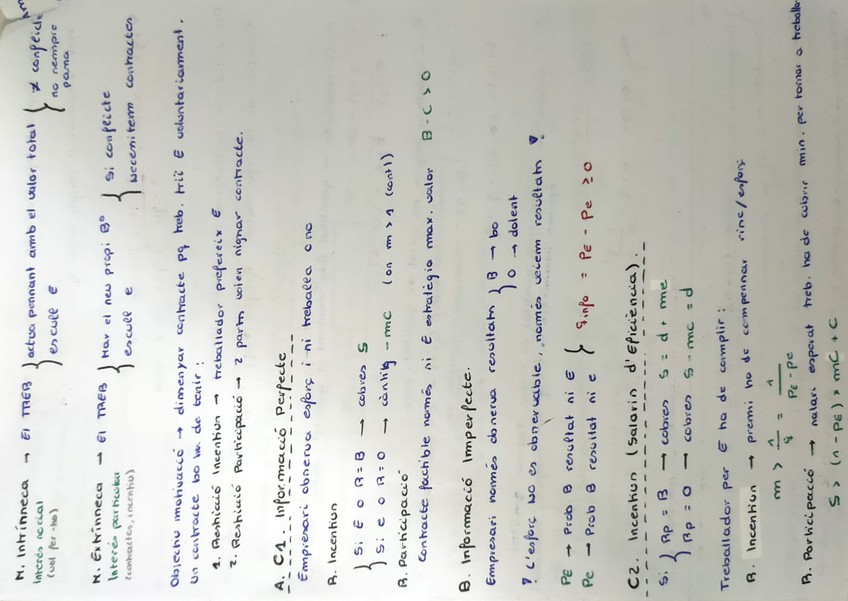 M. Intrínseca → El TREB } actua pensant amb el valor total } ≠ conflicte
Interès social escull E no sempre
(vol fer-ho) passa
M. Extrínseca → El TREB } Max el seu propi Bº } Si conflicte
Interès particular escull e Necessitem contractes
(contractes, incentiu)
Objectiu motivació → dissenyar contracte pq treb. triï E voluntariament.
Un contracte bo ha de tenir:
1. Restricció Incentius → treballador prefereix E
2. Restricció Participació → 2 parts volen signar contracte.
A. C1. Informació Perfecte
Empresari observa esforç i si treballa o no
R. Incentius
{ Si E o R=B → cobres S
Si e o R=0 → càstig -mc (on m>1 (cont))
R. Participació
Contracte factible només si E estratègia max. valor B-C>0
B. Informació Imperfecte.
Empresari només observa resultats { B → bo
0 → dolent
? L'esforç NO és observable, només veiem resultats !
PE → Prob B resultat si E } qinfo = PE - Pe ≥0
Pe → Prob B resultat si e
C2. Incentius (Salaris d'Eficiència).
Si { Rp = B → cobres S = d + mc
Rp = 0 → cobres S - mc = d
Treballador per E ha de complir:
R. Incentius → premi ha de compensar risc/esforç
m > 1/q = 1/PE-pe
R. Participació → salari esperat treb. ha de cobrir min. per tornar a treballa
S > (1-PE) × mC + C